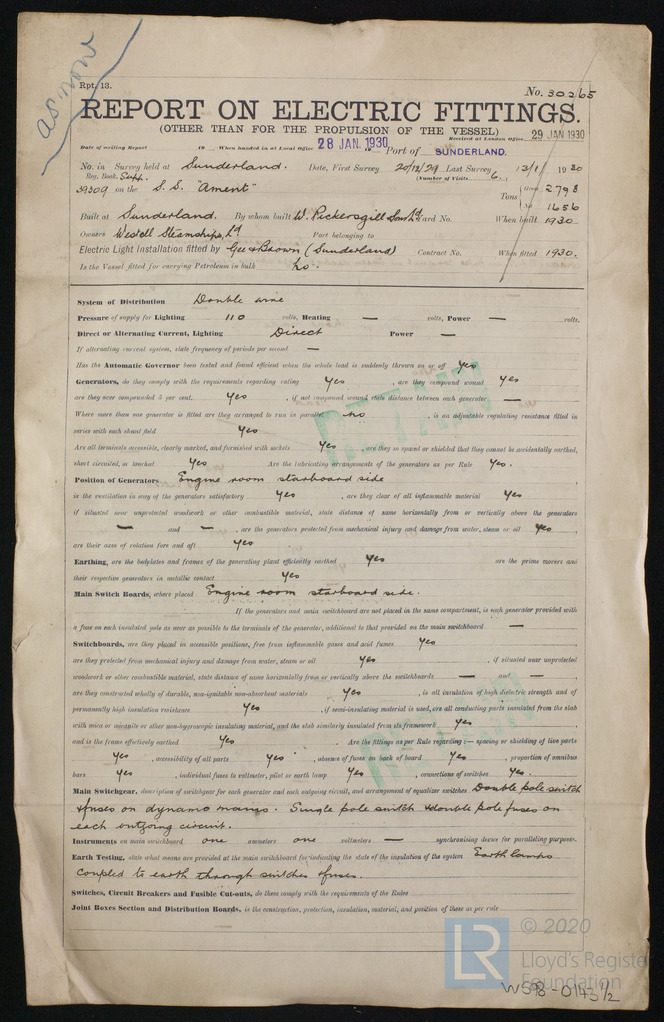 as now
Rpt. 13.
No. 30265
REPORT ON ELECTRIC FITTINGS.
(OTHER THAN FOR THE PROPULSION OF THE VESSEL)
Received at London Office 29 JAN 1930
Date of writing Report 19 When handed in at Local Office 28 JAN. 1930 Port of SUNDERLAND.
No. in Survey held at Sunderland. Date, First Survey 20/12/29 Last Survey 13/1/ 1930
Reg. Book. Supp. (Number of Visits 6.)
39309 on the S.S. "Ament" Tons { Gross 2798
1656
Built at Sunderland. By whom built W. Pickersgill & Sons Ld Yard No. When built 1930
Owners Westoll Steamships, Ld Port belonging to
Electric Light Installation fitted by Geo. Brown (Sunderland) Contract No. When fitted 1930.
Is the Vessel fitted for carrying Petroleum in bulk no.
System of Distribution Double wire
Pressure of supply for Lighting 110 volts, Heating — volts, Power — volts.
Direct or Alternating Current, Lighting Direct Power —
If alternating current system, state frequency of periods per second —
Has the Automatic Governor been tested and found efficient when the whole load is suddenly thrown on or off Yes
Generators, do they comply with the requirements regarding rating Yes, are they compound wound Yes
are they over compounded 5 per cent. Yes, if not compound wound state distance between each generator —
Where more than one generator is fitted are they arranged to run in parallel no, is an adjustable regulating resistance fitted in
series with each shunt field Yes
Are all terminals accessible, clearly marked, and furnished with sockets Yes, are they so spaced or shielded that they cannot be accidentally earthed,
short circuited, or touched Yes Are the lubricating arrangements of the generators as per Rule Yes.
Position of Generators Engine room starboard side
is the ventilation in way of the generators satisfactory Yes, are they clear of all inflammable material Yes
if situated near unprotected woodwork or other combustible material, state distance of same horizontally from or vertically above the generators
— and —, are the generators protected from mechanical injury and damage from water, steam or oil Yes,
are their axes of rotation fore and aft Yes
Earthing, are the bedplates and frames of the generating plant efficiently earthed Yes are the prime movers and
their respective generators in metallic contact Yes
Main Switch Boards, where placed Engine room starboard side.
If the generators and main switchboard are not placed in the same compartment, is each generator provided with
a fuse on each insulated pole as near as possible to the terminals of the generator, additional to that provided on the main switchboard —
Switchboards, are they placed in accessible positions, free from inflammable gases and acid fumes Yes
are they protected from mechanical injury and damage from water, steam or oil Yes, if situated near unprotected
woodwork or other combustible material, state distance of same horizontally from or vertically above the switchboards — and —,
are they constructed wholly of durable, non-ignitable non-absorbent materials Yes, is all insulation of high dielectric strength and of
permanently high insulation resistance Yes, if semi-insulating material is used, are all conducting parts insulated from the slab
with mica or micanite or other non-hygroscopic insulating material, and the slab similarly insulated from its framework Yes,
and is the frame effectively earthed Yes. Are the fittings as per Rule regarding:— spacing or shielding of live parts
Yes, accessibility of all parts Yes, absence of fuses on back of board Yes, proportion of omnibus
bars Yes, individual fuses to voltmeter, pilot or earth lamp Yes, connections of switches Yes.
Main Switchgear, description of switchgear for each generator and each outgoing circuit, and arrangement of equalizer switches Double pole switch
& fuses on dynamo mains. Single pole switch & double pole fuses on
each outgoing circuit.
Instruments on main switchboard one ammeters one voltmeters — synchronising device for paralleling purposes.
Earth Testing, state what means are provided at the main switchboard for indicating the state of the insulation of the system Earth lamps
coupled to earth through switches & fuses.
Switches, Circuit Breakers and Fusible Cut-outs, do these comply with the requirements of the Rules
Joint Boxes Section and Distribution Boards, is the construction, protection, insulation, material, and position of these as per rule
RETAIN
RETAIN
LR
© 2020
Lloyd's Register
Foundation
W598-0143 1/2